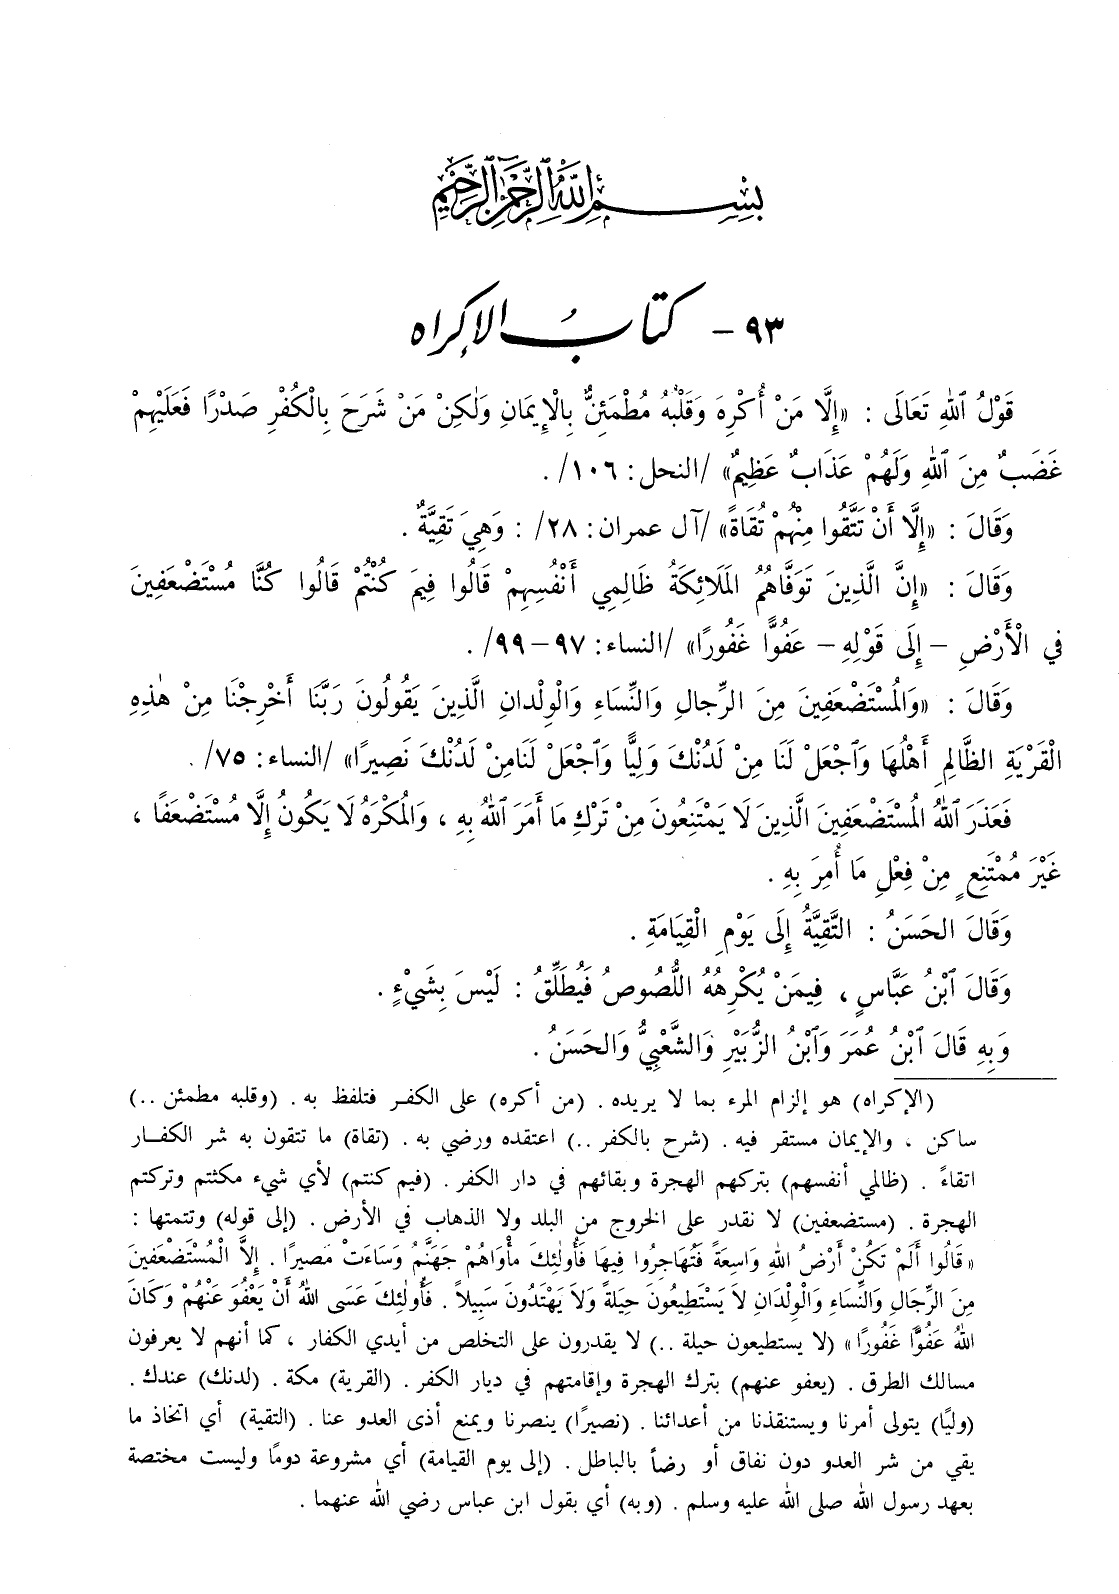 بِسْمِ اللهِ الرَّحْمٰنِ الرَّحِيْمِ
٩٣ - كتابُ الإكراه
قَوْلُ ٱللهِ تَعَالَى : «إِلَّا مَنْ أُكْرِهَ وَقَلْبُهُ مُطْمَئِنٌّ بِالْإِيمَانِ وَلٰكِنْ مَنْ شَرَحَ بِالْكُفْرِ صَدْرًا فَعَلَيْهِمْ
غَضَبٌ مِنَ ٱللهِ وَلَهُمْ عَذَابٌ عَظِيمٌ» /النحل: ١٠٦/ .
وَقَالَ : «إِلَّا أَنْ تَتَّقُوا مِنْهُمْ تُقَاةً» /آل عمران: ٢٨/ : وَهِيَ تَقِيَّةٌ .
وَقَالَ : «إِنَّ الَّذِينَ تَوَفَّاهُمُ المَلَائِكَةُ ظَالِمِي أَنْفُسِهِمْ قَالُوا فِيمَ كُنْتُمْ قَالُوا كُنَّا مُسْتَضْعَفِينَ
في الْأَرْضِ – إِلَى قَوْلِهِ – عَفُوًّا غَفُورًا» /النساء: ٩٧–٩٩/ .
وَقَالَ : «وَالمُسْتَضْعَفِينَ مِنَ الرِّجالِ وَالنِّسَاءِ وَالْوِلْدانِ الَّذِينَ يَقُولُونَ رَبَّنَا أَخْرِجْنَا مِنْ هٰذِهِ
الْقَرْيَةِ الظَّالِمِ أَهْلُهَا وَٱجْعَلْ لَنَا مِنْ لَدُنْكَ وَلِيًّا وَٱجْعَلْ لَنَامِنْ لَدُنْكَ نَصِيرًا» /النساء: ٧٥/ .
فَعَذَرَ ٱللهُ المُسْتَضْعَفِينَ الَّذِينَ لَا يَمْتَنِعُونَ مِنْ تَرْكِ مَا أَمَرَ ٱللهُ بِهِ ، وَالمُكْرَهُ لَا يَكُونُ إِلَّا مُسْتَضْعَفًا ،
غَيْرَ مُمْتَنِعٍ مِنْ فِعْلِ مَا أُمِرَ بِهِ .
وَقَالَ الحَسَنُ : التَّقِيَّةُ إِلَى يَوْمِ الْقِيَامَةِ .
وَقَالَ ٱبْنُ عَبَّاسٍ ، فِيمَنْ يُكْرِهُهُ اللُّصُوصُ فَيُطَلِّقُ : لَيْسَ بِشَيْءٍ .
وَبِهِ قَالَ ٱبْنُ عُمَرَ وَٱبْنُ الزُّبَيْرِ وَالشَّعْبِيُّ وَالحَسَنُ .
(الإكراه) هو إلزام المرء بما لا يريده . (من أكره) على الكفر فتلفظ به . (وقلبه مطمئن ..)
ساكن ، والإيمان مستقر فيه . (شرح بالكفر ..) اعتقده ورضي به . (تقاة) ما تتقون به شر الكفار
اتقاءً . (ظالمي أنفسهم) بتركهم الهجرة وبقائهم في دار الكفر . (فيم كنتم) لأي شيء مكثتم وتركتم
الهجرة . (مستضعفين) لا نقدر على الخروج من البلد ولا الذهاب في الأرض . (إلى قوله) وتتمتها :
«قَالُوا أَلَمْ تَكُنْ أَرْضُ اللهِ وَاسِعَةً فَتُهَاجِرُوا فِيهَا فَأُولٰئِكَ مَأْوَاهُمْ جَهَنَّمُ وَسَاءَتْ مَصِيرًا . إِلاَّ الْمُسْتَضْعَفِينَ
مِنَ الرِّجَالِ وَالنِّسَاءِ وَالْوِلْدَانِ لاَ يَسْتَطِيعُونَ حِيلَةً وَلاَ يَهْتَدُونَ سَبِيلاً . فَأُولٰئِكَ عَسَى اللهُ أَنْ يَعْفُوَ عَنْهُمْ وَكَانَ
اللهُ عَفُوًّا غَفُورًا» (لا يستطيعون حيلة ..) لا يقدرون على التخلص من أيدي الكفار ، كما أنهم لا يعرفون
مسالك الطرق . (يعفو عنهم) بترك الهجرة وإقامتهم في ديار الكفر . (القرية) مكة . (لدنك) عندك .
(وليًا) يتولى أمرنا ويستنقذنا من أعدائنا . (نصيرًا) ينصرنا ويمنع أذى العدو عنا . (التقية) أي اتخاذ ما
يقي من شر العدو دون نفاق أو رضاً بالباطل . (إلى يوم القيامة) أي مشروعة دومًا وليست مختصة
بعهد رسول الله صلى الله عليه وسلم . (وبه) أي بقول ابن عباس رضي الله عنهما .